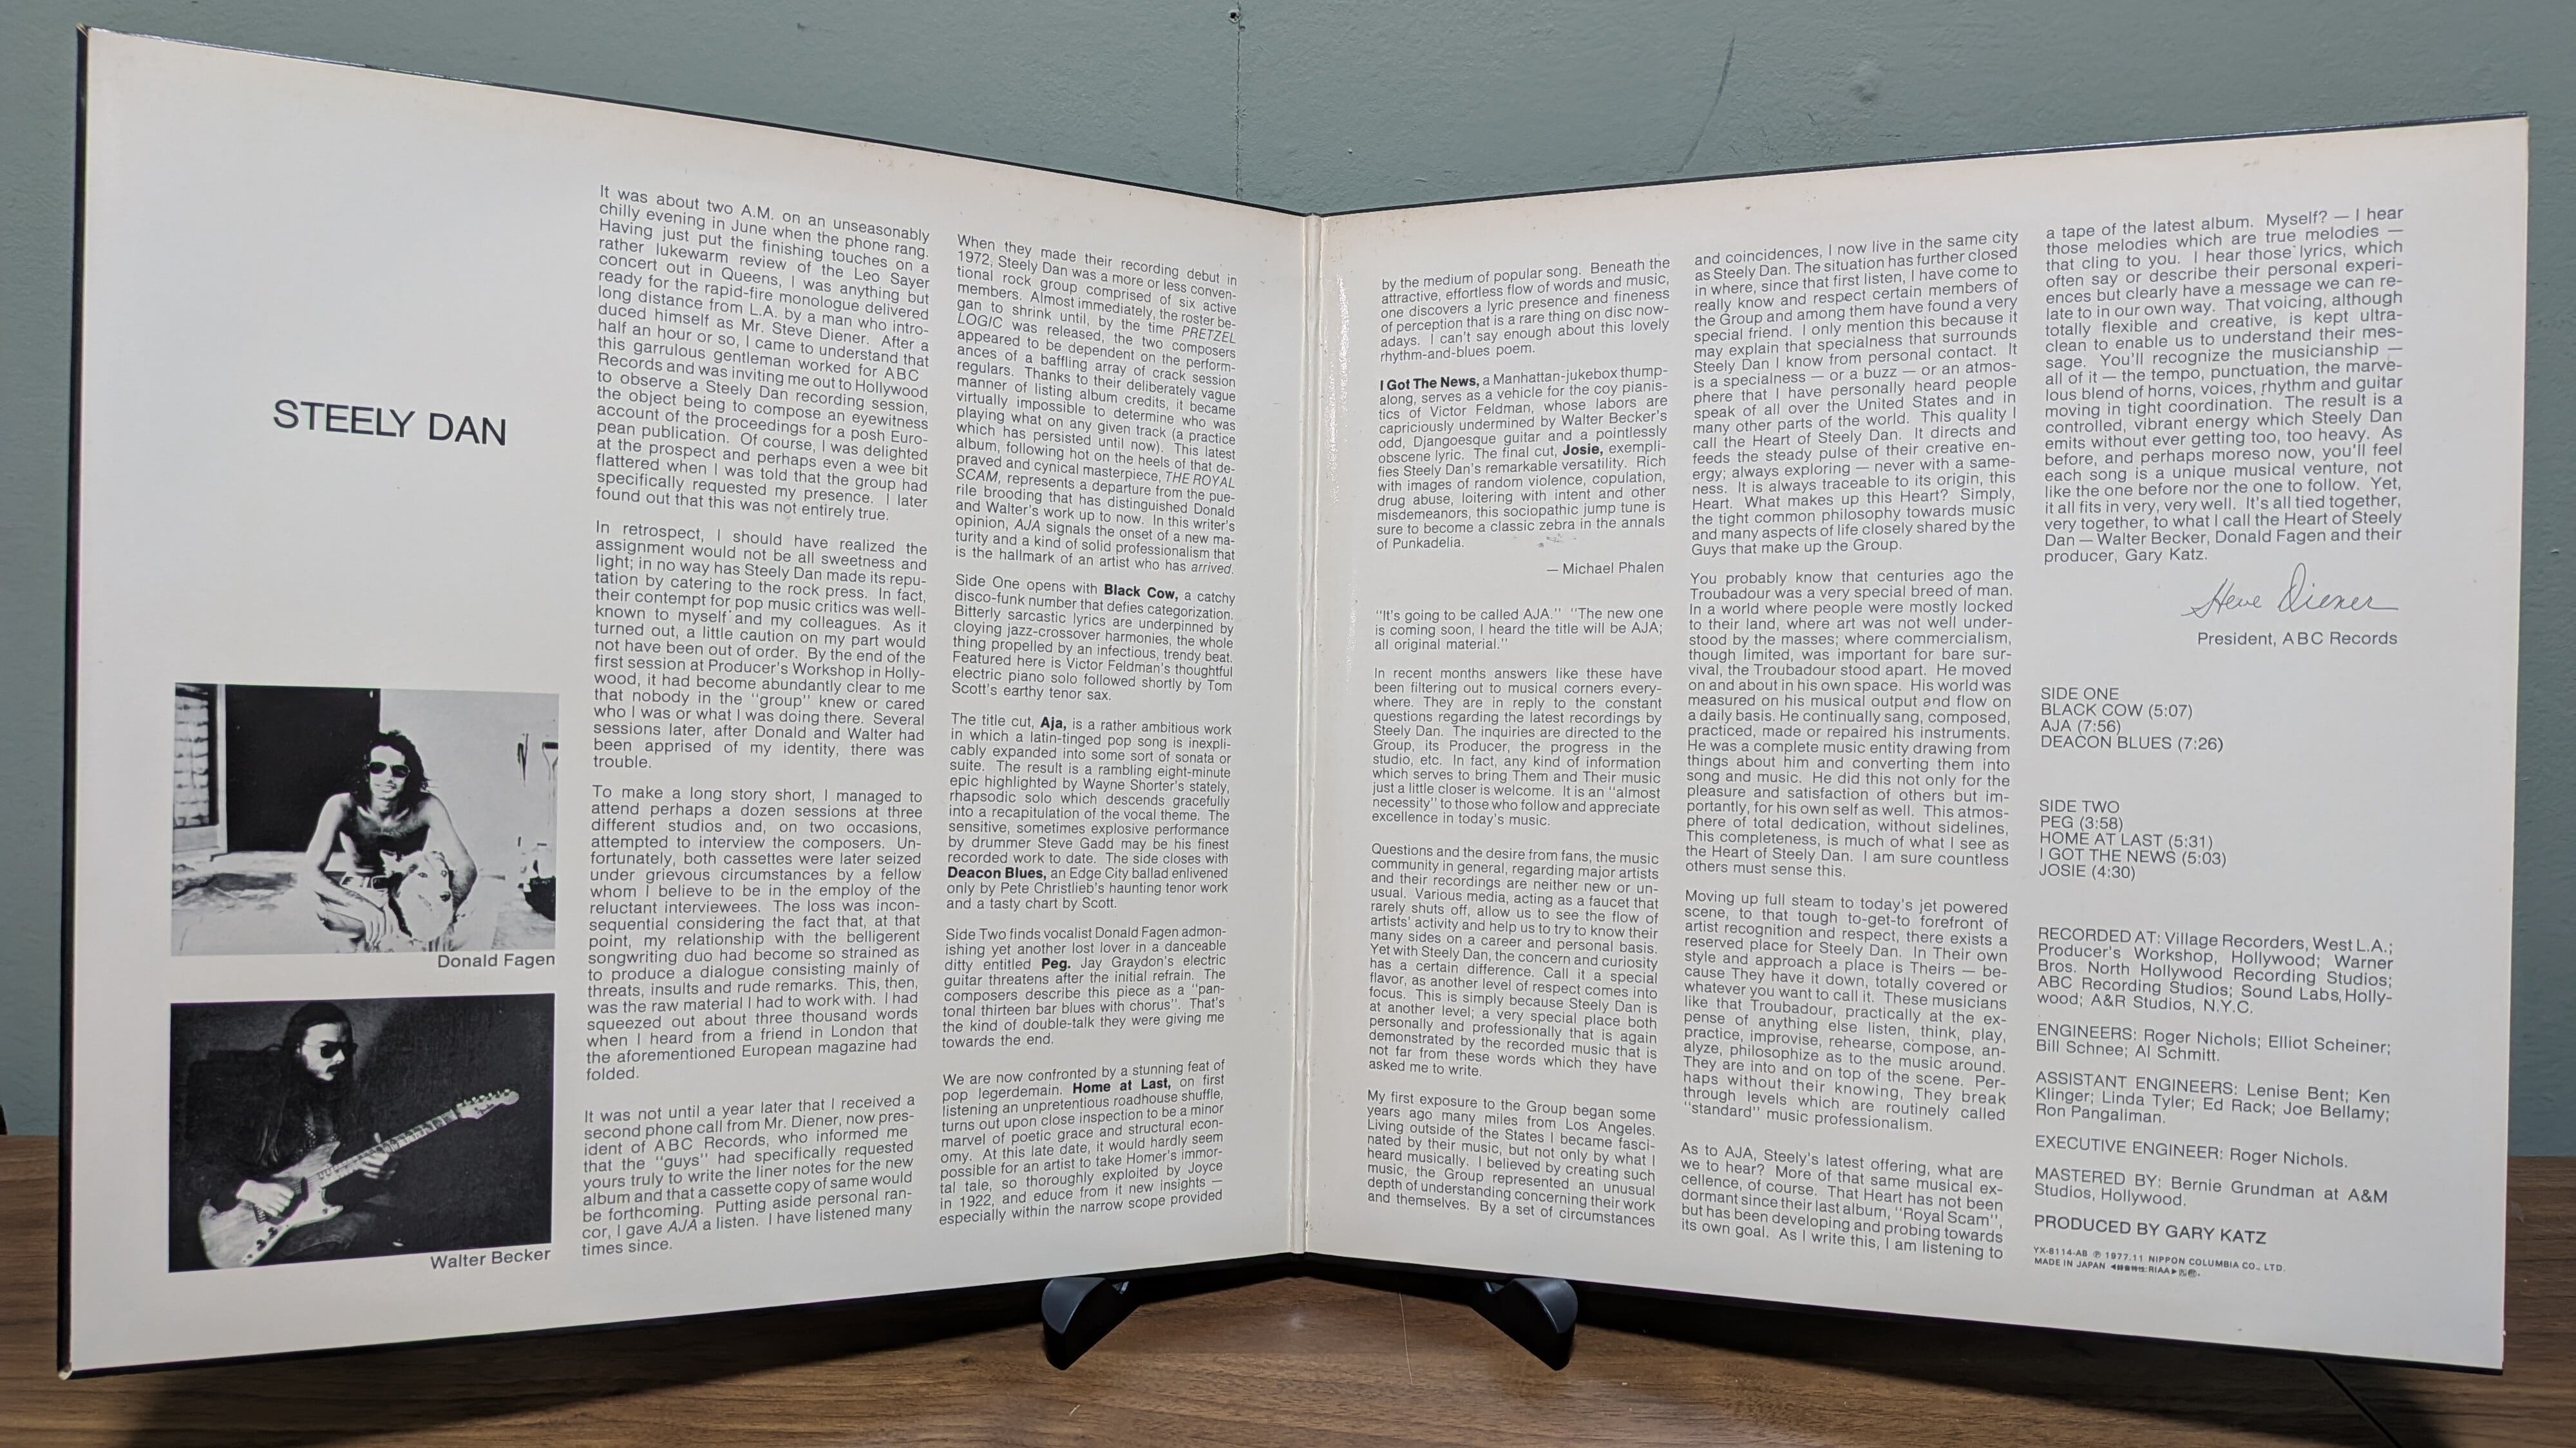 STEELY DAN
Donald Fagen
Walter Becker
It was about two A.M. on an unseasonably
chilly evening in June when the phone rang.
Having just put the finishing touches on a
rather lukewarm review of the Leo Sayer
concert out in Queens, I was anything but
ready for the rapid-fire monologue delivered
long distance from L.A. by a man who intro-
duced himself as Mr. Steve Diener. After a
half an hour or so, I came to understand that
this garrulous gentleman worked for ABC
Records and was inviting me out to Hollywood
to observe a Steely Dan recording session,
the object being to compose an eyewitness
account of the proceedings for a posh Euro-
pean publication. Of course, I was delighted
at the prospect and perhaps even a wee bit
flattered when I was told that the group had
specifically requested my presence. I later
found out that this was not entirely true.
In retrospect, I should have realized the
assignment would not be all sweetness and
light; in no way has Steely Dan made its repu-
tation by catering to the rock press. In fact,
their contempt for pop music critics was well-
known to myself and my colleagues. As it
turned out, a little caution on my part would
not have been out of order. By the end of the
first session at Producer's Workshop in Holly-
wood, it had become abundantly clear to me
that nobody in the "group" knew or cared
who I was or what I was doing there. Several
sessions later, after Donald and Walter had
been apprised of my identity, there was
trouble.
To make a long story short, I managed to
attend perhaps a dozen sessions at three
different studios and, on two occasions,
attempted to interview the composers. Un-
fortunately, both cassettes were later seized
under grievous circumstances by a fellow
whom I believe to be in the employ of the
reluctant interviewees. The loss was incon-
sequential considering the fact that, at that
point, my relationship with the belligerent
songwriting duo had become so strained as
to produce a dialogue consisting mainly of
threats, insults and rude remarks. This, then,
was the raw material I had to work with. I had
squeezed out about three thousand words
when I heard from a friend in London that
the aforementioned European magazine had
folded.
It was not until a year later that I received a
second phone call from Mr. Diener, now pres-
ident of ABC Records, who informed me
that the "guys" had specifically requested
yours truly to write the liner notes for the new
album and that a cassette copy of same would
be forthcoming. Putting aside personal ran-
cor, I gave AJA a listen. I have listened many
times since.
When they made their recording debut in
1972, Steely Dan was a more or less conven-
tional rock group comprised of six active
members. Almost immediately, the roster be-
gan to shrink until, by the time PRETZEL
LOGIC was released, the two composers
appeared to be dependent on the perform-
ances of a baffling array of crack session
regulars. Thanks to their deliberately vague
manner of listing album credits, it became
virtually impossible to determine who was
playing what on any given track (a practice
which has persisted until now). This latest
album, following hot on the heels of that de-
praved and cynical masterpiece, THE ROYAL
SCAM, represents a departure from the pue-
rile brooding that has distinguished Donald
and Walter's work up to now. In this writer's
opinion, AJA signals the onset of a new ma-
turity and a kind of solid professionalism that
is the hallmark of an artist who has arrived.
Side One opens with Black Cow, a catchy
disco-funk number that defies categorization.
Bitterly sarcastic lyrics are underpinned by
cloying jazz-crossover harmonies, the whole
thing propelled by an infectious, trendy beat.
Featured here is Victor Feldman's thoughtful
electric piano solo followed shortly by Tom
Scott's earthy tenor sax.
The title cut, Aja, is a rather ambitious work
in which a latin-tinged pop song is inexpli-
cably expanded into some sort of sonata or
suite. The result is a rambling eight-minute
epic highlighted by Wayne Shorter's stately,
rhapsodic solo which descends gracefully
into a recapitulation of the vocal theme. The
sensitive, sometimes explosive performance
by drummer Steve Gadd may be his finest
recorded work to date. The side closes with
Deacon Blues, an Edge City ballad enlivened
only by Pete Christlieb's haunting tenor work
and a tasty chart by Scott.
Side Two finds vocalist Donald Fagen admon-
ishing yet another lost lover in a danceable
ditty entitled Peg. Jay Graydon's electric
guitar threatens after the initial refrain. The
composers describe this piece as a "pan-
tonal thirteen bar blues with chorus". That's
the kind of double-talk they were giving me
towards the end.
We are now confronted by a stunning feat of
pop legerdemain. Home at Last, on first
listening an unpretentious roadhouse shuffle,
turns out upon close inspection to be a minor
marvel of poetic grace and structural econ-
omy. At this late date, it would hardly seem
possible for an artist to take Homer's immor-
tal tale, so thoroughly exploited by Joyce
in 1922, and educe from it new insights —
especially within the narrow scope provided
by the medium of popular song. Beneath the
attractive, effortless flow of words and music,
one discovers a lyric presence and fineness
of perception that is a rare thing on disc now-
adays. I can't say enough about this lovely
rhythm-and-blues poem.
I Got The News, a Manhattan-jukebox thump-
along, serves as a vehicle for the coy pianis-
tics of Victor Feldman, whose labors are
capriciously undermined by Walter Becker's
odd, Djangoesque guitar and a pointlessly
obscene lyric. The final cut, Josie, exempli-
fies Steely Dan's remarkable versatility. Rich
with images of random violence, copulation,
drug abuse, loitering with intent and other
misdemeanors, this sociopathic jump tune is
sure to become a classic zebra in the annals
of Punkadelia.
— Michael Phalen
"It's going to be called AJA." "The new one
is coming soon, I heard the title will be AJA;
all original material."
In recent months answers like these have
been filtering out to musical corners every-
where. They are in reply to the constant
questions regarding the latest recordings by
Steely Dan. The inquiries are directed to the
Group, its Producer, the progress in the
studio, etc. In fact, any kind of information
which serves to bring Them and Their music
just a little closer is welcome. It is an "almost
necessity" to those who follow and appreciate
excellence in today's music.
Questions and the desire from fans, the music
community in general, regarding major artists
and their recordings are neither new or un-
usual. Various media, acting as a faucet that
rarely shuts off, allow us to see the flow of
artists' activity and help us to try to know their
many sides on a career and personal basis.
Yet with Steely Dan, the concern and curiosity
has a certain difference. Call it a special
flavor, as another level of respect comes into
focus. This is simply because Steely Dan is
at another level; a very special place both
personally and professionally that is again
demonstrated by the recorded music that is
not far from these words which they have
asked me to write.
My first exposure to the Group began some
years ago many miles from Los Angeles.
Living outside of the States I became fasci-
nated by their music, but not only by what I
heard musically. I believed by creating such
music, the Group represented an unusual
depth of understanding concerning their work
and themselves. By a set of circumstances
and coincidences, I now live in the same city
as Steely Dan. The situation has further closed
in where, since that first listen, I have come to
really know and respect certain members of
the Group and among them have found a very
special friend. I only mention this because it
may explain that specialness that surrounds
Steely Dan I know from personal contact. It
is a specialness — or a buzz — or an atmos-
phere that I have personally heard people
speak of all over the United States and in
many other parts of the world. This quality I
call the Heart of Steely Dan. It directs and
feeds the steady pulse of their creative en-
ergy; always exploring — never with a same-
ness. It is always traceable to its origin, this
Heart. What makes up this Heart? Simply,
the tight common philosophy towards music
and many aspects of life closely shared by the
Guys that make up the Group.
You probably know that centuries ago the
Troubadour was a very special breed of man.
In a world where people were mostly locked
to their land, where art was not well under-
stood by the masses; where commercialism,
though limited, was important for bare sur-
vival, the Troubadour stood apart. He moved
on and about in his own space. His world was
measured on his musical output and flow on
a daily basis. He continually sang, composed,
practiced, made or repaired his instruments.
He was a complete music entity drawing from
things about him and converting them into
song and music. He did this not only for the
pleasure and satisfaction of others but im-
portantly, for his own self as well. This atmos-
phere of total dedication, without sidelines,
This completeness, is much of what I see as
the Heart of Steely Dan. I am sure countless
others must sense this.
Moving up full steam to today's jet powered
scene, to that tough to-get-to forefront of
artist recognition and respect, there exists a
reserved place for Steely Dan. In Their own
style and approach a place is Theirs — be-
cause They have it down, totally covered or
whatever you want to call it. These musicians
like that Troubadour, practically at the ex-
pense of anything else listen, think, play,
practice, improvise, rehearse, compose, an-
alyze, philosophize as to the music around.
They are into and on top of the scene. Per-
haps without their knowing, They break
through levels which are routinely called
"standard" music professionalism.
As to AJA, Steely's latest offering, what are
we to hear? More of that same musical ex-
cellence, of course. That Heart has not been
dormant since their last album, "Royal Scam",
but has been developing and probing towards
its own goal. As I write this, I am listening to
a tape of the latest album. Myself? — I hear
those melodies which are true melodies —
that cling to you. I hear those lyrics, which
often say or describe their personal experi-
ences but clearly have a message we can re-
late to in our own way. That voicing, although
totally flexible and creative, is kept ultra-
clean to enable us to understand their mes-
sage. You'll recognize the musicianship —
all of it — the tempo, punctuation, the marve-
lous blend of horns, voices, rhythm and guitar
moving in tight coordination. The result is a
controlled, vibrant energy which Steely Dan
emits without ever getting too, too heavy. As
before, and perhaps moreso now, you'll feel
each song is a unique musical venture, not
like the one before nor the one to follow. Yet,
it all fits in very, very well. It's all tied together,
very together, to what I call the Heart of Steely
Dan — Walter Becker, Donald Fagen and their
producer, Gary Katz.
Steve Diener
President, ABC Records
SIDE ONE
BLACK COW (5:07)
AJA (7:56)
DEACON BLUES (7:26)
SIDE TWO
PEG (3:58)
HOME AT LAST (5:31)
I GOT THE NEWS (5:03)
JOSIE (4:30)
RECORDED AT: Village Recorders, West L.A.;
Producer's Workshop, Hollywood; Warner
Bros. North Hollywood Recording Studios;
ABC Recording Studios; Sound Labs, Holly-
wood; A&R Studios, N.Y.C.
ENGINEERS: Roger Nichols; Elliot Scheiner;
Bill Schnee; Al Schmitt.
ASSISTANT ENGINEERS: Lenise Bent; Ken
Klinger; Linda Tyler; Ed Rack; Joe Bellamy;
Ron Pangaliman.
EXECUTIVE ENGINEER: Roger Nichols.
MASTERED BY: Bernie Grundman at A&M
Studios, Hollywood.
PRODUCED BY GARY KATZ
YX-8114-AB ℗ 1977.11 NIPPON COLUMBIA CO., LTD.
MADE IN JAPAN ◀録音特性:RIAA▶